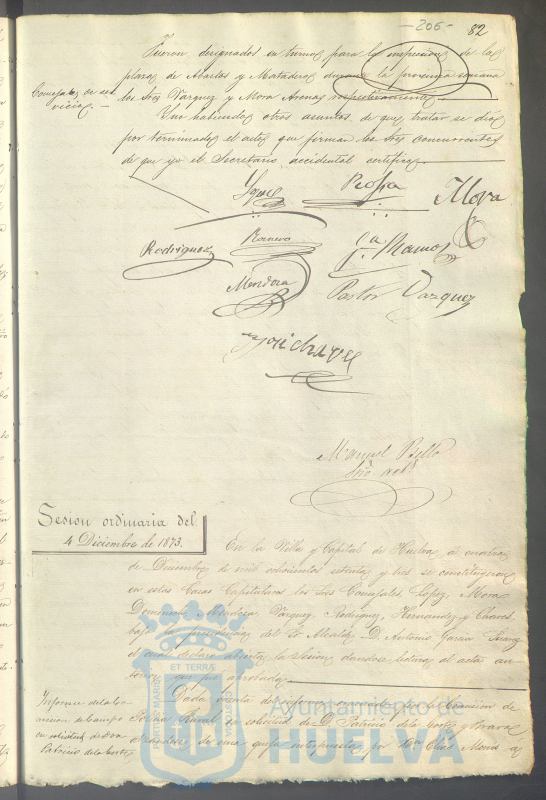 -206-
82
Fueron designados en turnos para la inspeccion de la
plaza de Abastos y Matadero durante la procsima semana
Concejales de ser
vicio.
los Sres Vazquez y Mora Arenas respectivamente.
Que habiendo otros asuntos de que tratar se dió
por terminado el acto, que firman los Sres concurrentes
de que yo el Secretario accidental certifico.
Mora
Rodriguez
Romero
Ramos
Mendoza
Pastor Vazquez
José Chavez
Manuel
Sesion ordinaria del
4 Diciembre de 1873.
En la Villa y Capital de Huelva, á cuatro
de Diciembre de mil ochocientos setenta y tres se constituyeron
en estas Casas Capitulares los Sres Concejales Lopez, Mora
Mendoza, Vazquez, Rodriguez, Hernandez y Chaves
bajo la presidencia del Sr Alcalde D. Antonio Garcia
el cual declaró abierta la sesion dandose lectura al acta an
terior que fue aprobada.
Informe de la Co
mision de Campo
en solicitud de Don
Patricio de la Corte
Dada cuenta del informe de la Comision de
Policia Rural en solicitud de D. Patricio de la Corte y Bravo
de una queja interpuesta por
PORTUS MARIS
ET TERRÆ
CUSTODIA
Ayuntamiento de
HUELVA